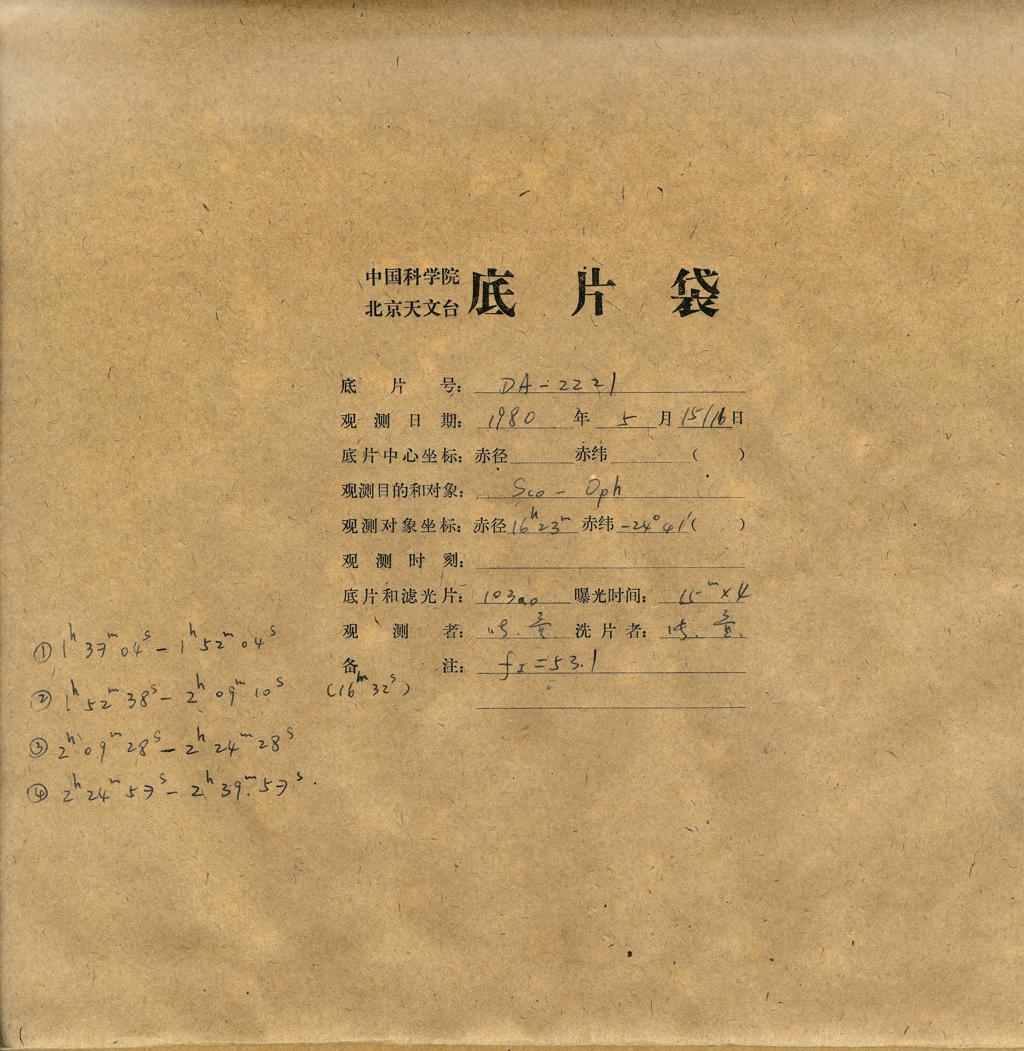 中国科学院
北京天文台
底片袋
底片号: DA-2221
观测日期: 1980 年 5 月 15/16 日
底片中心坐标: 赤径 赤纬 ( )
观测目的和对象: Sco - Oph
观测对象坐标: 赤径 16ʰ23ᵐ 赤纬 -24°41′ ( )
观测时刻:
底片和滤光片: 103aO 曝光时间: 15ᵐ×4
观测者: 洗片者:
备注: fx=53.1
① 1ʰ37ᵐ04ˢ - 1ʰ52ᵐ04ˢ
② 1ʰ52ᵐ38ˢ - 2ʰ09ᵐ10ˢ (16ᵐ32ˢ)
③ 2ʰ09ᵐ28ˢ - 2ʰ24ᵐ28ˢ
④ 2ʰ24ᵐ57ˢ - 2ʰ39ᵐ57ˢ.